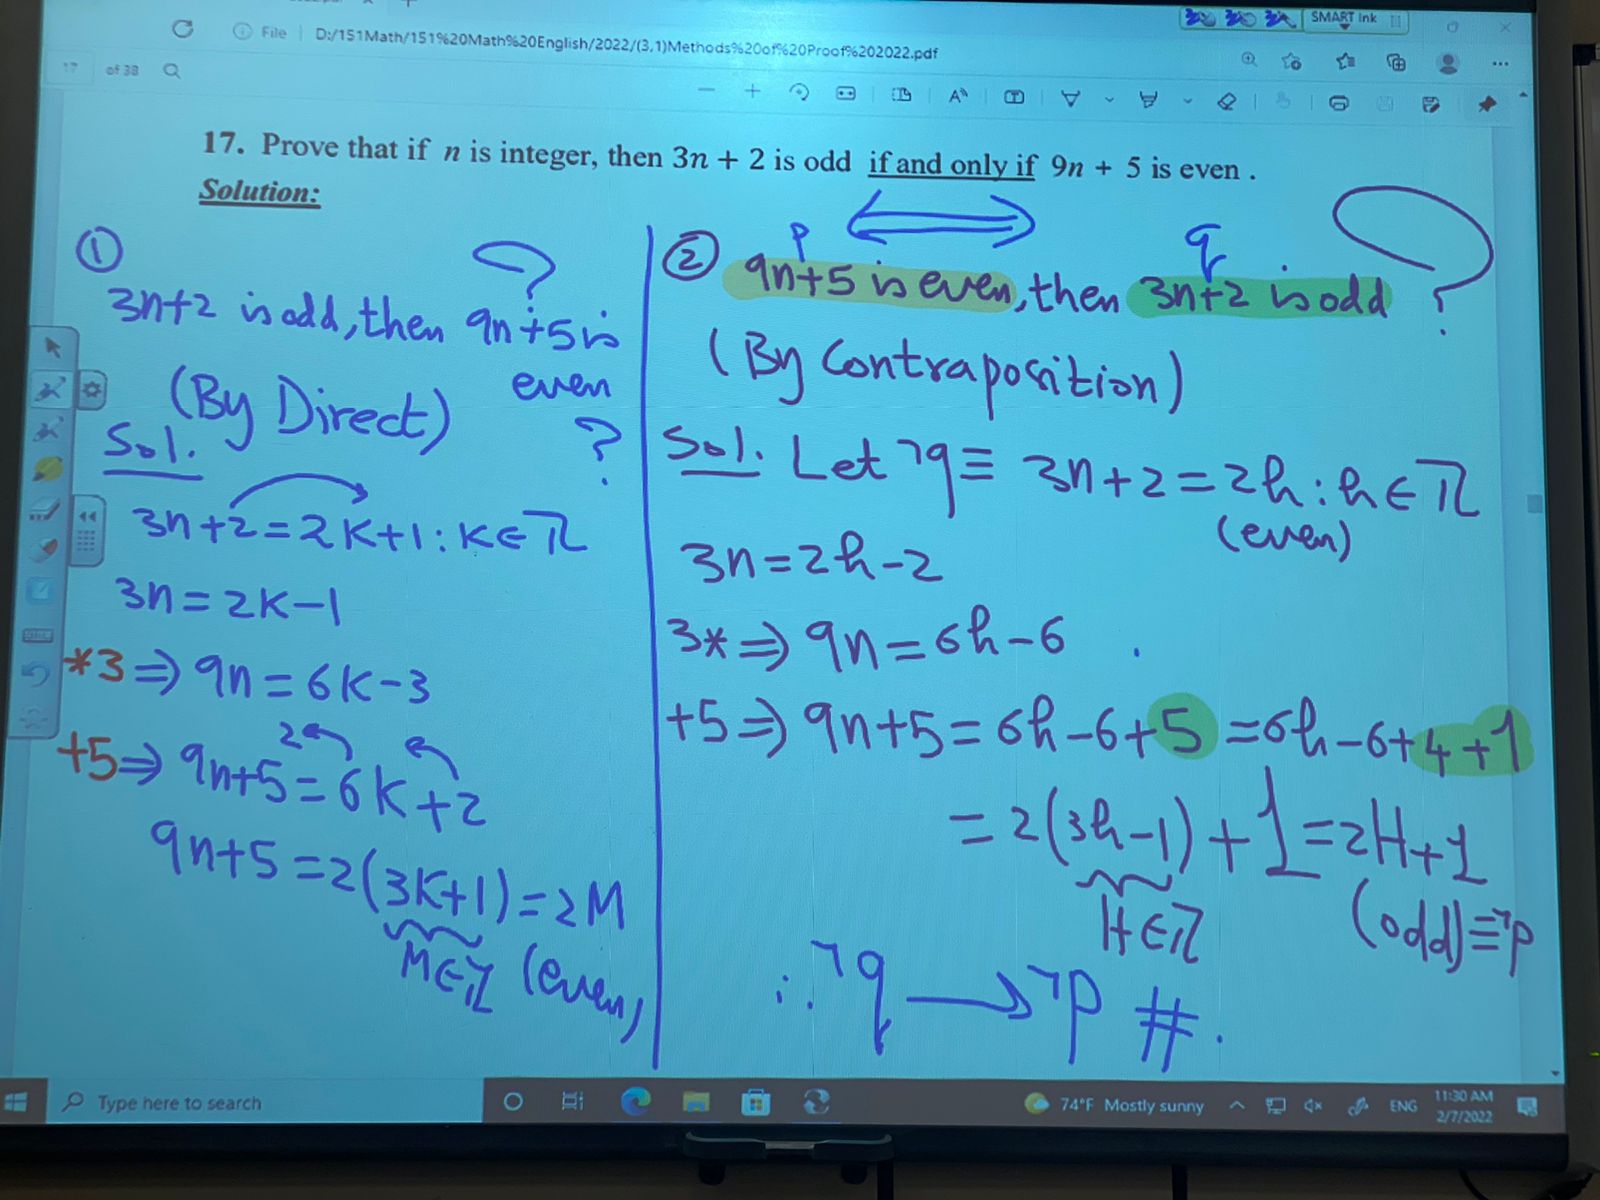 SMART Ink
File | D:/151Math/151%20Math%20English/2022/(3,1)Methods%20of%20Proof%202022.pdf
17 of 38
17. Prove that if n is integer, then 3n + 2 is odd if and only if 9n + 5 is even .
Solution:
①
3n+2 is odd, then 9n+5 is
even
?
(By Direct)
?
Sol.
3n+2=2K+1:K∈ℤ
3n=2K-1
*3⇒ 9n=6K-3
+5⇒ 9n+5=6K+2
2
9n+5=2(3K+1)=2M
M∈ℤ (even)
⟺
p
q
② 9n+5 is even, then 3n+2 is odd ?
(By Contraposition)
Sol. Let ¬q≡ 3n+2=2h:h∈ℤ
(even)
3n=2h-2
3*⇒ 9n=6h-6
+5⇒ 9n+5=6h-6+5=6h-6+4+1
=2(3h-1)+1=2H+1
H∈ℤ
(odd)≡¬p
∴ ¬q → ¬p #.
Type here to search
74°F Mostly sunny
ENG
11:30 AM
2/7/2022